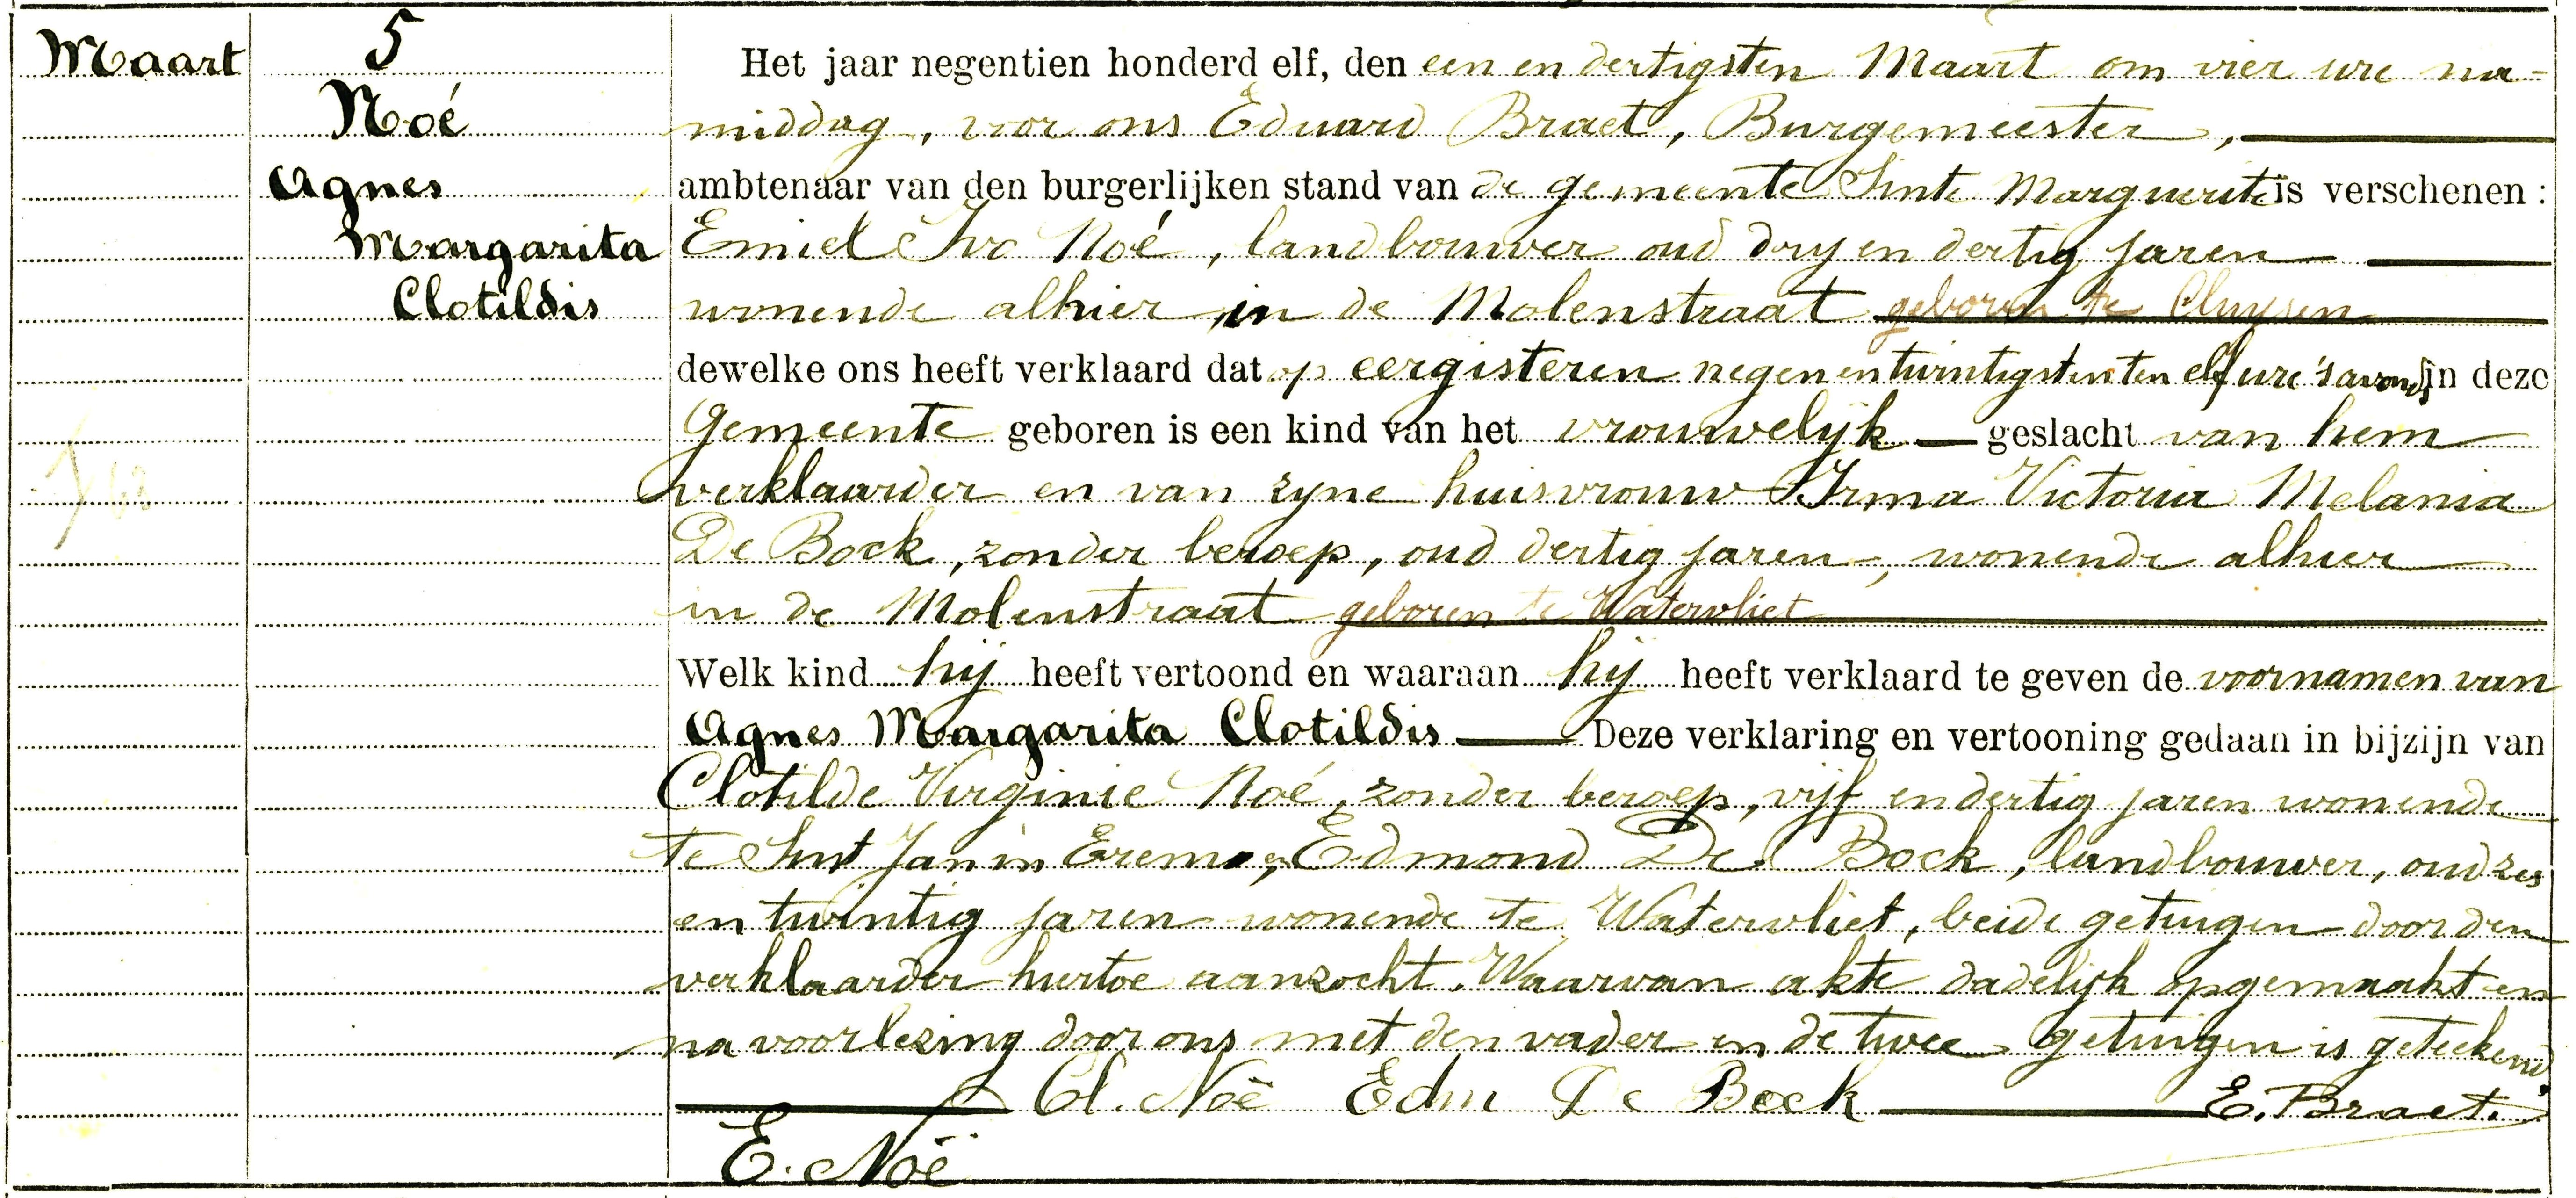 Maart
5
Noé
Agnes
Margarita
Clotildis
Het jaar negentien honderd elf, den een en dertigsten Maart om vier ure na-
middag, voor ons Eduard Braet, Burgemeester,
ambtenaar van den burgerlijken stand van de gemeente Sinte Marguerite is verschenen :
Emiel Ivo Noé, landbouwer oud dry en dertig jaren
wonende alhier in de Molenstraat geboren te Cluysen
dewelke ons heeft verklaard dat op eergisteren negen en twintigsten ten elf ure 's avonds, in deze
Gemeente geboren is een kind van het vrouwelijk geslacht van hem
verklaarder en van zyne huisvrouw Irma Victoria Melania
De Bock, zonder beroep, oud dertig jaren, wonende alhier
in de Molenstraat geboren te Watervliet
Welk kind hij heeft vertoond en waaraan hij heeft verklaard te geven de voornamen van
Agnes Margarita Clotildis Deze verklaring en vertooning gedaan in bijzijn van
Clotilde Virginie Noé, zonder beroep, vijf en dertig jaren wonende
te Sint Jan in Eremo, en Edmond De Bock, landbouwer, oud zes
en twintig jaren wonende te Watervliet, beide getuigen door den
verklaarder hiertoe aanzocht. Waarvan akte dadelijk opgemaakt en
na voorlezing door ons met den vader en de twee getuigen is geteekend
Cl. Noë Edm De Bock E. Braet.
E. Noë